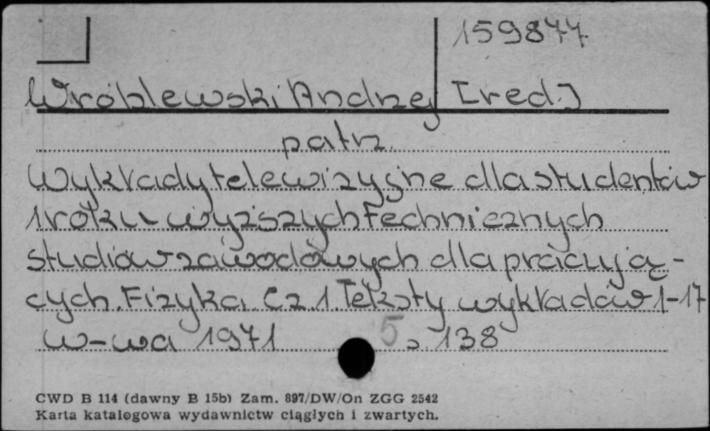 159877
Wróblewski Andrzej [red.]
patrz
Wykłady telewizyjne dla studentów
1 roku wyższych technicznych
studiów zawodowych dla pracują-
cych. Fizyka. Cz 1. Teksty wykładów 1-17
W-wa 1971 s 138
CWD B 114 (dawny B 15b) Zam. 897/DW/On ZGG 2542
Karta katalogowa wydawnictw ciągłych i zwartych.